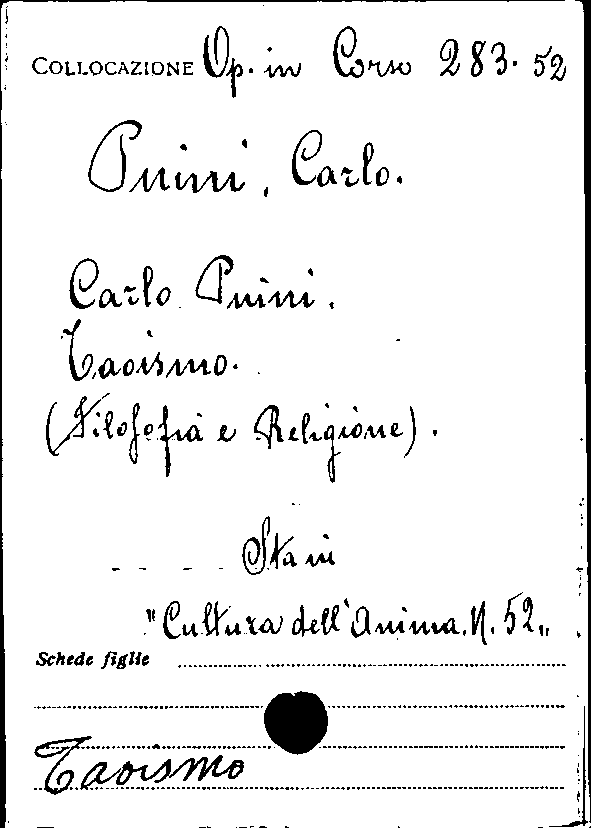 COLLOCAZIONE Op. in Corso 283. 52
Puini, Carlo.
Carlo Puini.
Taoismo.
(Filosofia e Religione).
Sta in
"Cultura dell'Anima. N. 52"
Schede figlie
Taoismo